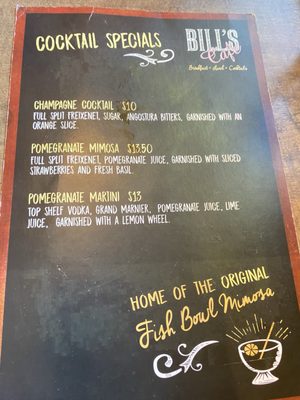 COCKTAIL SPECIALS
BILL'S
Cafe
Breakfast • Lunch • Cocktails
CHAMPAGNE COCKTAIL $10
FULL SPLIT FREIXENET, SUGAR, ANGOSTURA BITTERS, GARNISHED WITH AN
ORANGE SLICE.
POMEGRANATE MIMOSA $13.50
FULL SPLIT FREIXENET, POMEGRANATE JUICE, GARNISHED WITH SLICED
STRAWBERRIES AND FRESH BASIL.
POMEGRANATE MARTINI $13
TOP SHELF VODKA, GRAND MARNIER, POMEGRANATE JUICE, LIME
JUICE, GARNISHED WITH A LEMON WHEEL.
HOME OF THE ORIGINAL
Fish Bowl Mimosa